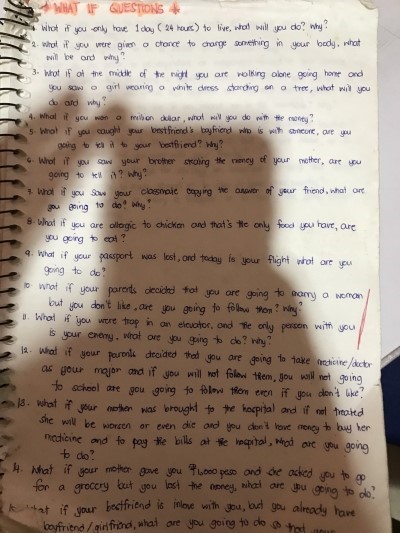 WHAT IF QUESTIONS
1. What if you only have 1 day (24 hours) to live, what will you do? Why?
2. What if you were given a chance to change something in your body, what
will be and why?
3. What if at the middle of the night you are walking alone going home and
you saw a girl wearing a white dress standing on a tree, what will you
do and why?
4. What if you won a million dollar, what will you do with the money?
5. What if you caught your bestfriend's boyfriend who is with someone, are you
going to tell it to your bestfriend? Why?
6. What if you saw your brother stealing the money of your mother, are you
going to tell it? Why?
7. What if you saw your classmate copying the answer of your friend, what are
you going to do? Why?
8. What if you are allergic to chicken and that's the only food you have, are
you going to eat?
9. What if your passport was lost, and today is your flight what are you
going to do?
10. What if your parents decided that you are going to marry a woman
but you don't like, are you going to follow them? Why?
11. What if you were trap in an elevator, and the only person with you
is your enemy, what are you going to do? Why?
12. What if your parents decided that you are going to take medicine/doctor
as your major and if you will not follow them, you will not going
to school are you going to follow them even if you don't like?
13. What if your mother was brought to the hospital and if not treated
she will be worsen or even die and you don't have money to buy her
medicine and to pay the bills at the hospital, what are you going
to do?
14. What if your mother gave you peso and she asked you to go
for a grocery but you lost the money, what are you going to do?
What if your bestfriend is inlove with you, but you already have
boyfriend/girlfriend, what are you going to do that your